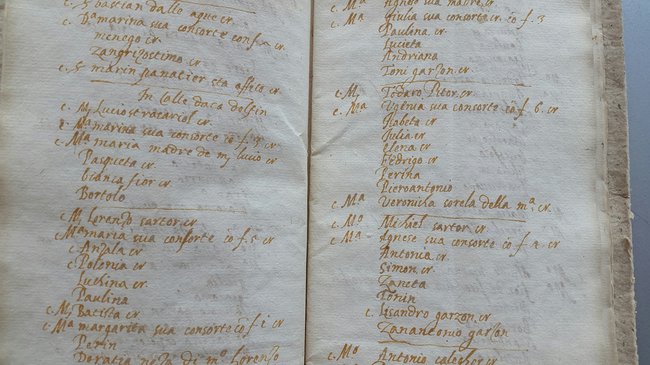 c. S. bastian dallo aque cr.
c. Dª marina sua consorte con f. 2. cr.
menego. cr.
Zangrisostimo. cr.
c. S. marin panatier sta assieo. cr.
In Calle da ca dolfin
c. M. Lucio stracariol cr.
c. Mª marina sua consorte cō f. 3. cr.
c. Mª maria madre de mʳ lucio cr.
Pasqueta cr.
bianca fior cr.
Bortolo
c. M. Lorenzo sartor. cr.
c. Mª maria sua consorte cō f. 5. cr.
c. Anzola cr.
c. Polonia cr.
Luchina cr.
Paulina
c. M. Batista cr.
c. Mª margarita sua consorte cō f. i cr.
Perin
Doratia neza di mº Lorenzo
c. Mª Agnese sua madre. cr.
c. Mª Giulia sua consorte cr. cō f. 3
Paulina. cr.
Lucieta
Andriana
Toni garzon. cr.
c. M. Todaro Pitor. cr.
c. Mª Vgenia sua consorte cō f. 6. cr.
Isabeta
Julia. cr.
elena cr.
Fedrigo cr.
Perina
Pieroantonio
c. Mª Veronicha sorela della mª. cr.
c. Mº Michiel sartor. cr.
c. Mª Agnese sua consorte cō f. 2. cr.
Antonia. cr.
Simon. cr.
Zaneta
Tonin
c. Lisandro garzon. cr.
Zanantonio garzon
c. Mº Antonio calegher cr.